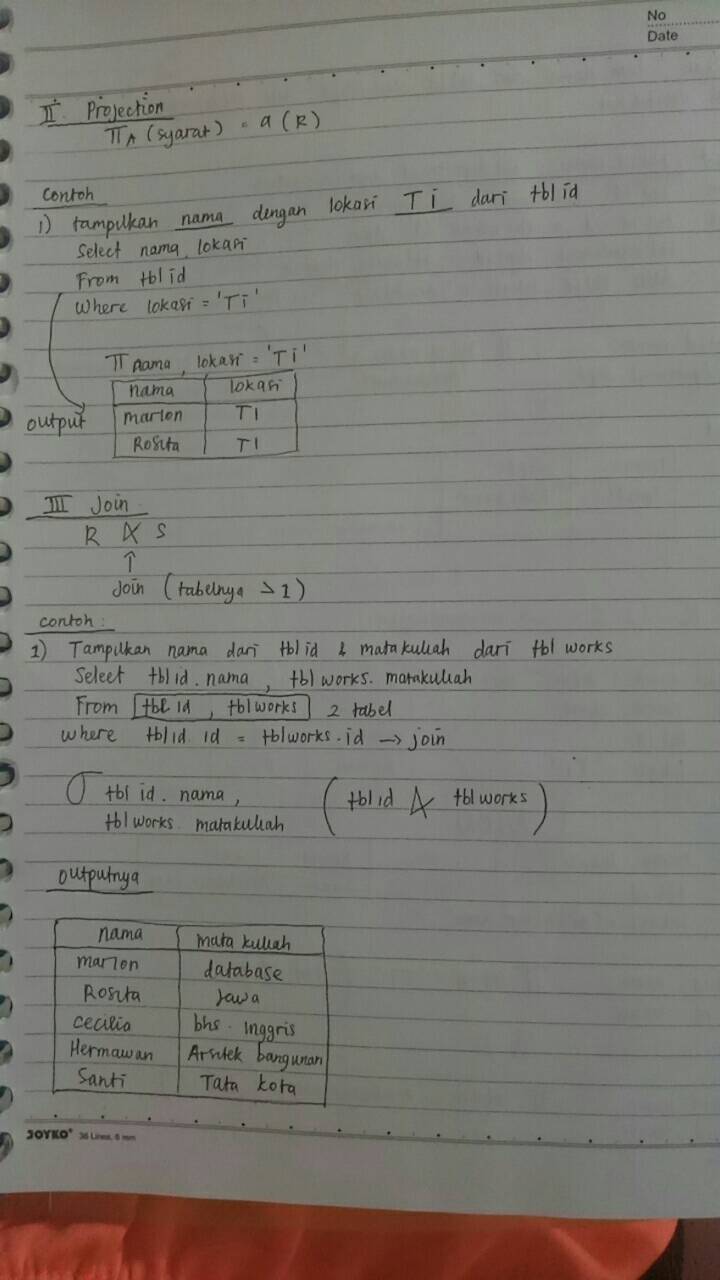 No
Date
II. Projection
π A (syarat) = a (R)
Contoh
1) tampilkan nama dengan lokasi Ti dari tbl id
Select nama, lokasi
From tbl id
Where lokasi = 'Ti'
π nama, lokasi = 'Ti'
nama lokasi
output marlon TI
Rosita TI
III Join
R ⋈ S
↑
Join (tabelnya > 1)
contoh :
1) Tampilkan nama dari tbl id & matakuliah dari tbl works
Select tbl id. nama, tbl works. matakuliah
From tbl id, tbl works 2 tabel
where tbl id. id = tbl works. id → join
σ tbl id. nama, (tbl id ⋈ tbl works)
tbl works. matakuliah
outputnya
nama mata kuliah
marlon database
Rosita Jawa
cecilia bhs. Inggris
Hermawan Arsitek bangunan
Santi Tata kota
JOYKO 36 Lines, 6 mm